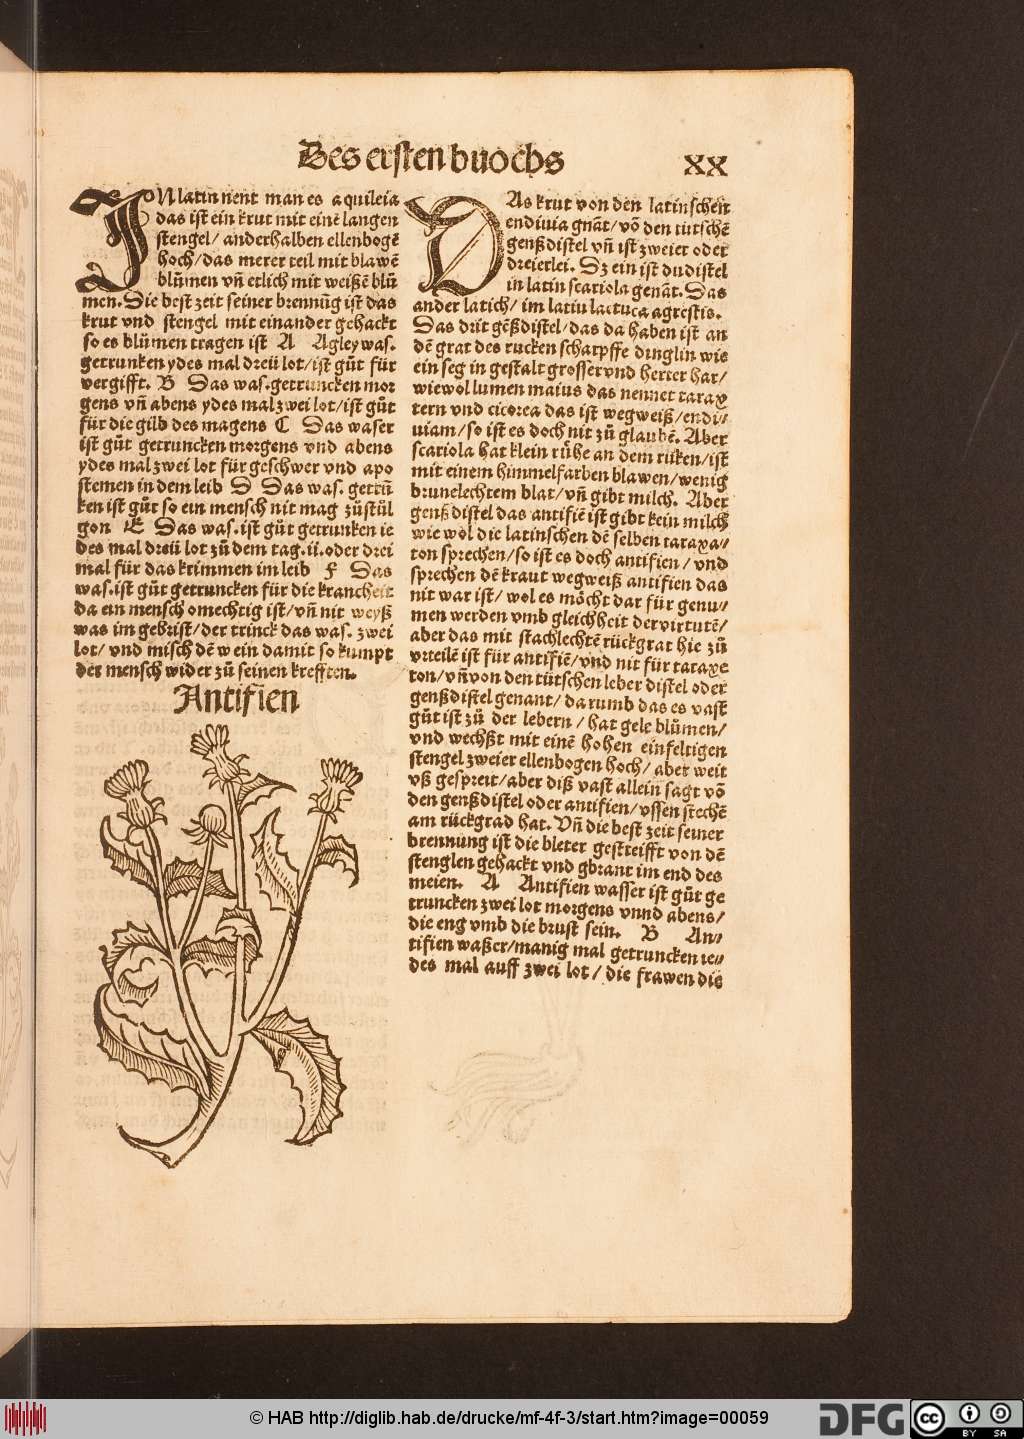 Des ersten buochs
XX
IN latin nent man es aquileia
das ist ein krut mit einē langen
stengel/ anderhalben ellenbogē
hoch/das merer teil mit blawē
blůmen vñ etlich mit weißē blů
men. Die best zeit seiner brennũg ist das
krut vnd stengel mit einander gehackt
so es blůmen tragen ist A Agley was.
getrunken ydes mal dreü lot/ist gůt für
vergifft. B Das was.getruncken mor
gens vñ abens ydes mal zwei lot/ist gůt
für die gilb des magens C Das waser
ist gůt getruncken morgens vnd abens
ydes mal zwei lot für geschwer vnd apo
stemen in dem leib D Das was. getrũ
ken ist gůt so ein mensch nit mag zůstůl
gon E Das was.ist gůt getrunken ie
des mal dreü lot zů dem tag.ii.oder drei
mal für das krimmen im leib F Das
was.ist gůt getruncken für die kranckeit
da ein mensch omechtig ist/vñ nit weyß
was im gebrist/der trinck das was. zwei
lot/ vnd misch dē wein damit so kumpt
der mensch wider zů seinen krefften.
Antifien
DAs krut von den latinschen
endiuia gnāt/vō den tütschē
genßdistel vñ ist zweier oder
dreierlei. Dz ein ist dudistel
in latin scariola genāt. Das
ander latich/ im latin lactuca agrestis.
Das drit gēßdistel/das da haben ist an
dē grat des rucken scharpffe dinglin wie
ein seg in gestalt grosser vnd herter hat/
wiewol lumen maius das nennet tarax
tern vnd cicorea das ist wegweiß/endi/
uiam/so ist es doch nit zů glaubē. Aber
scariola hat klein rühe an dem rüken/ist
mit einem himmelfarben blawen/wenig
brunelechtem blat/vñ gibt milch. Aber
genßdistel das antifiē ist gibt kein milch
wie wol die latinschen dē selben taraxa/
ton sprechen/so ist es doch antifien/vnd
sprechen dē kraut wegweiß antifien das
nit war ist/ wol es möcht dar für genu/
men werden vmb gleichheit der virtutē/
aber das mit stachlechtē rückgrat hie zů
vrteilē ist für antifiē/vnd nit für taraxe
ton/vñ von den tütschen leber distel oder
genßdistel genant/darumb das es vast
gůt ist zů der lebern/hat gele blůmen/
vnd wechßt mit einē hohen einfeltigen
stengel zweier ellenbogen hoch/ aber weit
vß gespreit/aber diß vast allein sagt vō
den genßdistel oder antifien/vssen stechē
am rückgrad hat. Vñ die best zeit seiner
brennung ist die bleter gestreifft von dē
stenglen gehackt vnd gbrant im end des
meien. A Antifien wasser ist gůt ge
truncken zwei lot morgens vnnd abens/
die eng vmb die brust sein. B An/
tifien waßer/manig mal getruncken ie/
des mal auff zwei lot/ die frawen die
© HAB http://diglib.hab.de/drucke/mf-4f-3/start.htm?image=00059
DFG
cc BY SA